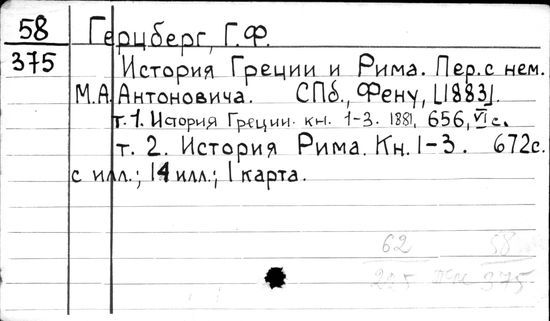 58
375
Герцберг, Г.Ф.
История Греции и Рима. Пер. с нем.
М.А. Антоновича. СПб., Фену, [1883].
т. 1. История Греции. кн. 1-3. 1881, 656, VI с.
т. 2. История Рима. Кн. 1-3. 672с.
с илл.; 14 илл.; 1 карта.
62 58
375